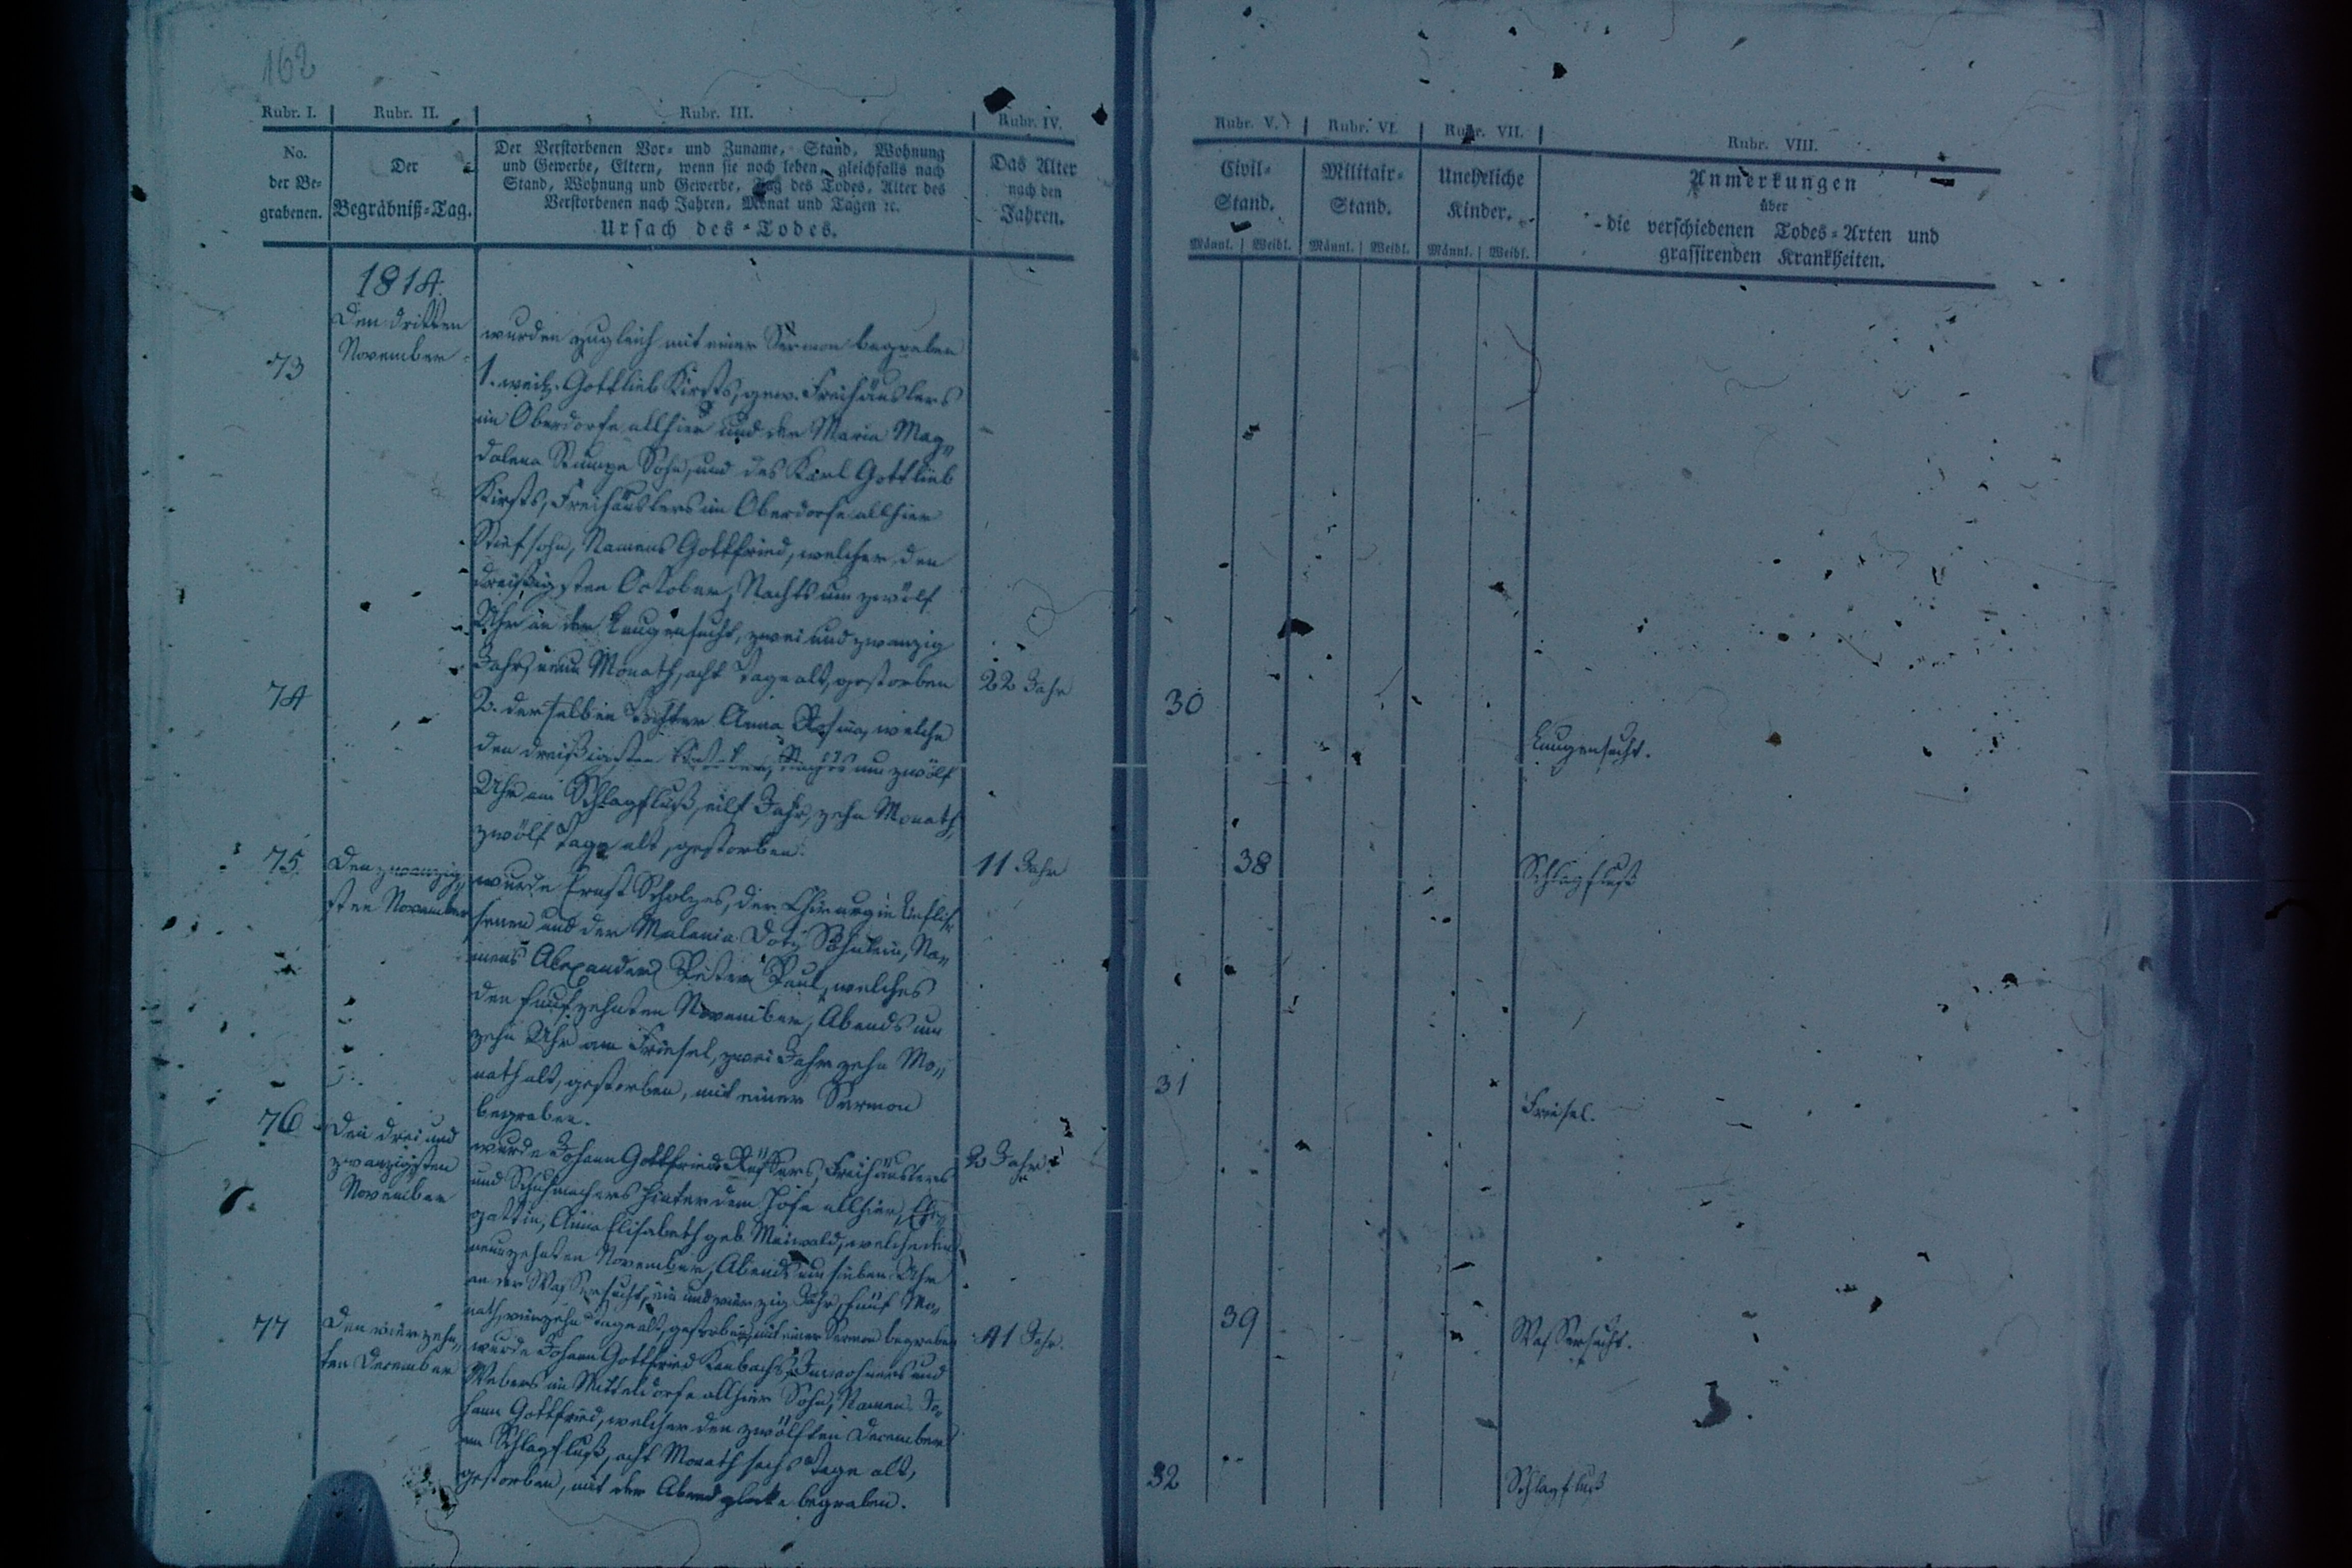 162
Rubr. I.
Rubr. II.
Rubr. III.
Rubr. IV.
Rubr. V.
Rubr. VI.
Rubr. VII.
Rubr. VIII.
No.
der Be-
grabenen.
Der
Begräbniß-Tag.
Der Verstorbenen Vor- und Zuname, Stand, Wohnung
und Gewerbe, Eltern, wenn sie noch leben, gleichfalls nach
Stand, Wohnung und Gewerbe, Tag des Todes, Alter des
Verstorbenen nach Jahren, Monat und Tagen ꝛc.
Ursach des Todes.
Das Alter
nach den
Jahren.
Civil-
Stand.
Männl. Weibl.
Militair-
Stand.
Männl. Weibl.
Uneheliche
Kinder.
Männl. Weibl.
Anmerkungen
über
die verschiedenen Todes-Arten und
grassirenden Krankheiten.
1814.
73
Den dritten
November
wurden zugleich mit einer Sermon begraben
1. weil. Gottlieb Kirsts, gew. Freihäuslers
im Oberdorfe allhier und der Maria Mag-
dalena Sohn, und des Karl Gottlieb
Kirsts, Freihäuslers im Oberdorfe allhier
Stiefsohn, Namens Gottfried, welcher den
dreißigsten October, Nachts um zwölf
Uhr an der Lungensucht, zwei und zwanzig
Jahr, neun Monath, acht Tage alt, gestorben
22 Jahr
30
Lungensucht.
74
2. derselben Tochter Anna Rosina, welche
den dreißigsten October, Nachts um zwölf
Uhr am Schlagfluß, eilf Jahr, zehn Monath,
zwölf Tage alt, gestorben.
11 Jahr
38
Schlagfluß
75.
Den zwanzig-
sten November
wurde Ernst Scholzes, der Chirurgie Beflis-
senen und der Söhnlein, Na-
mens Alexander Peter Paul, welches
den fünfzehnten November, Abends um
zehn Uhr am Friesel, zwei Jahr zehn Mo-
nath alt, gestorben, mit einer Sermon
begraben.
2 Jahr
31
Friesel.
76
Den drei und
zwanzigsten
November
wurde Johann Gottfried Freihäuslers
und Schuhmachers hinter dem Hofe allhier, Ehe-
gattin, Anna Elisabeth geb. Maiwald, welche den
neunzehnten November, Abends um sieben Uhr
an der Wassersucht, ein und vierzig Jahr, fünf Mo-
nath, vierzehn Tage alt, gestorben, mit einer Sermon begraben
41 Jahr.
39
Wassersucht.
77
Den vierzehn-
ten December
wurde Johann Gottfried Inwohners und
Webers im Mitteldorfe allhier Sohn, Namens Jo-
hann Gottfried, welcher den zwölften December
am Schlagfluß, acht Monath sechs Tage alt,
gestorben, mit der Abendglocke begraben.
32
Schlagfluß